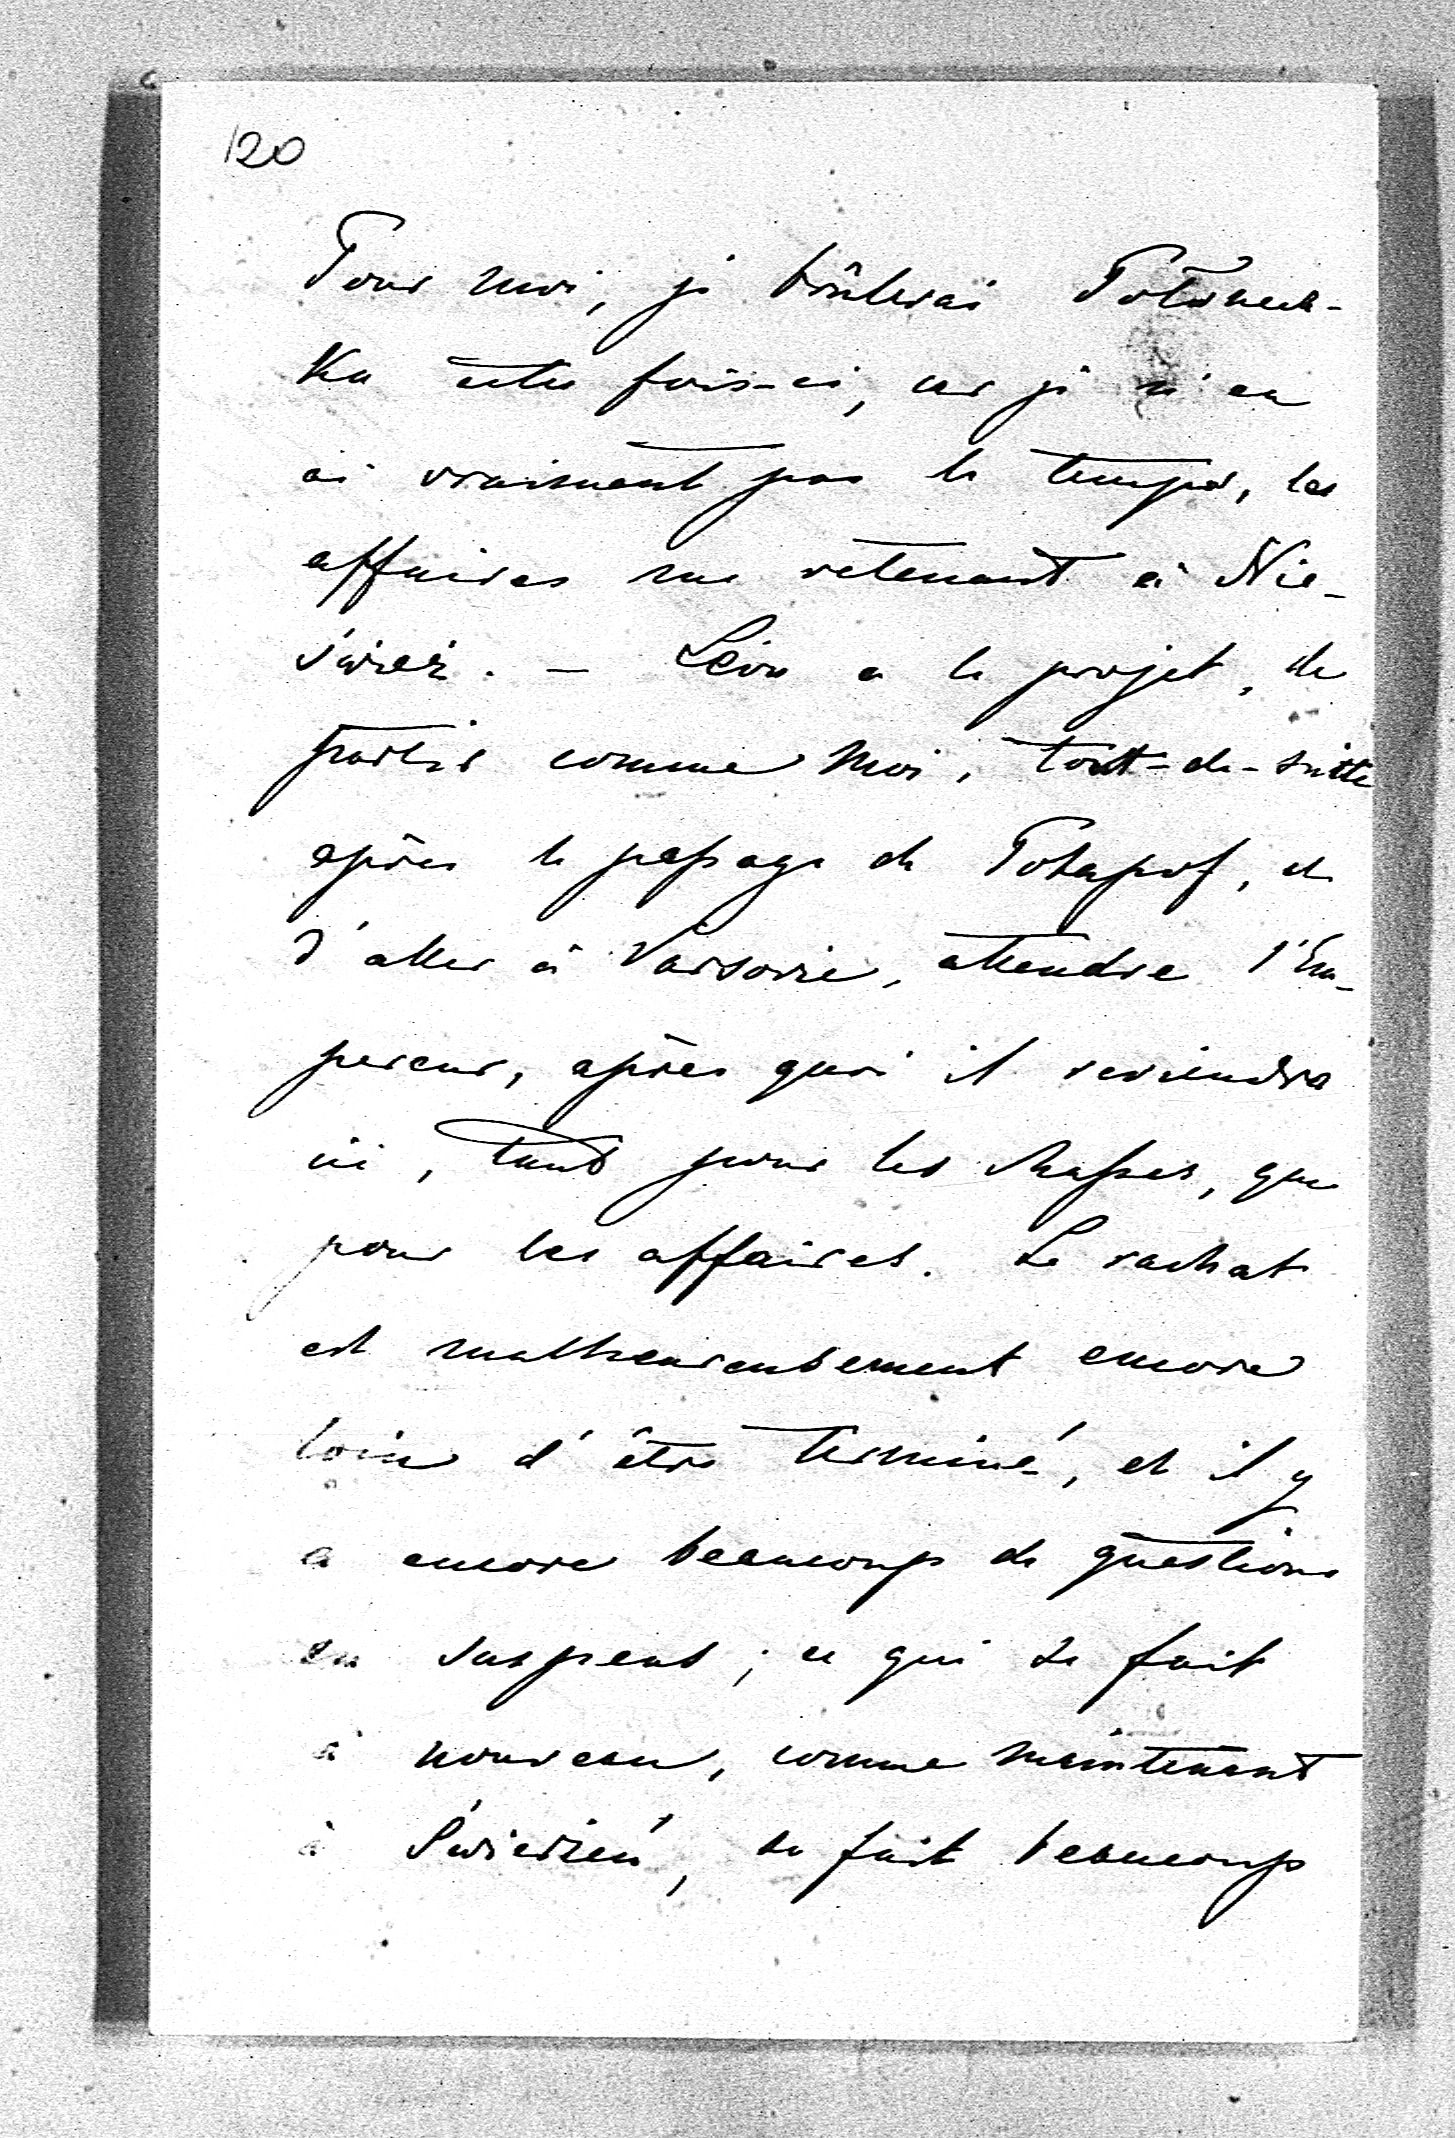 120
Pour moi, je brûlerai Potöneck-
ka cette fois-ci, car je n'en
ai vraiment pas le temps, les
affaires me retenant à Nie-
śwież. — Léon a le projet, de
partir comme moi, tout-de-suite
après le passage de Potapof, et
d'aller à Varsovie, attendre l'Em-
pereur, après quoi il reviendra
ici, tant pour les chasses, que
pour les affaires. Le rachat
est malheureusement encore
loin d'être terminé, et il y
a encore beaucoup de questions
en suspens; ce qui se fait
à nouveau, comme maintenant
à Świerżeń, se fait beaucoup